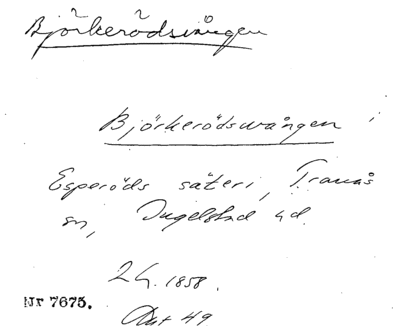 Björkerödsvången
Björkerödswången i
Esperöds säteri, Tranås
sn, Ingelstad hd.
LH. 1858.
Nr 7675.
Akt 49